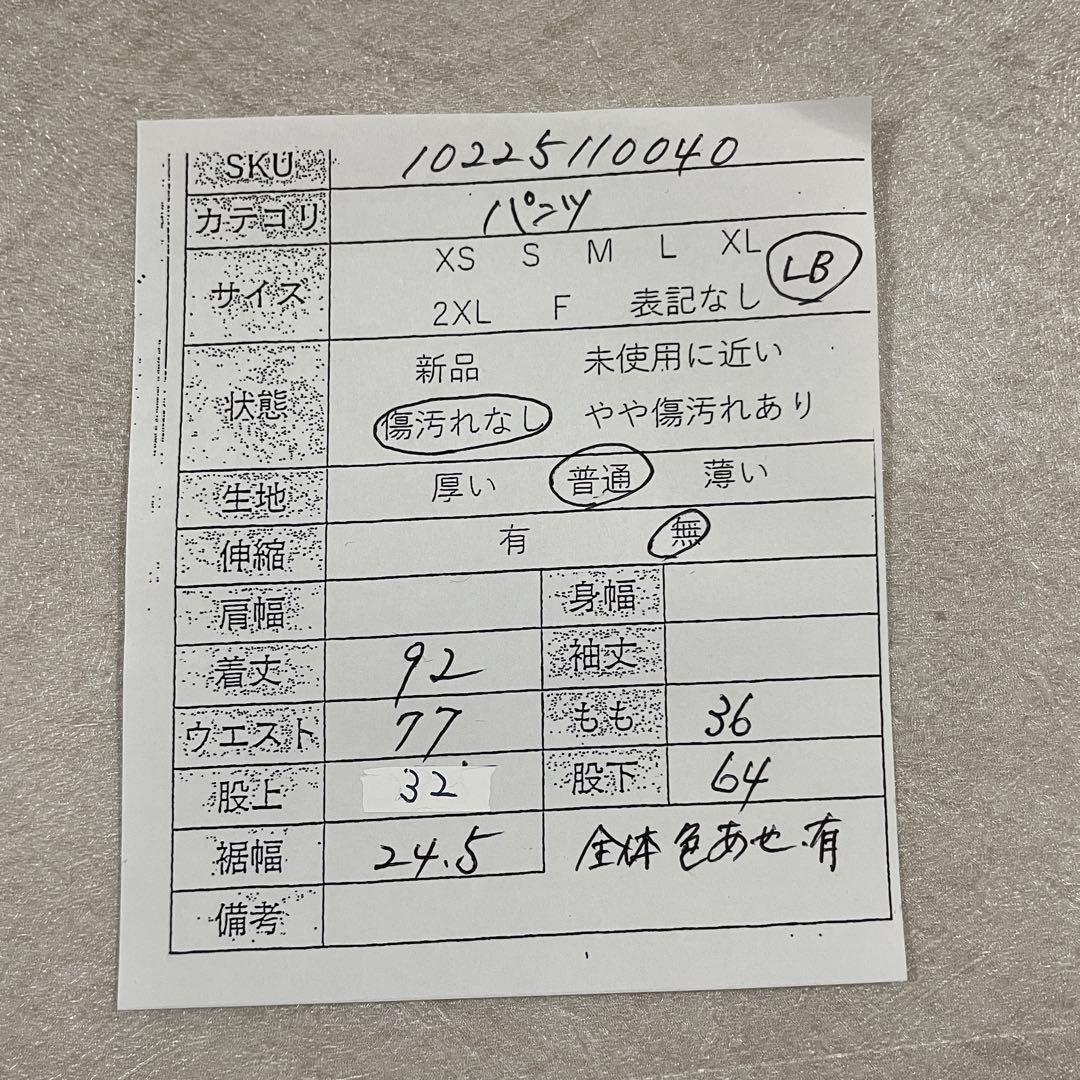 SKU 10225110040
カテゴリ パンツ
サイズ XS S M L XL LB
2XL F 表記なし
状態 新品 未使用に近い
傷汚れなし やや傷汚れあり
生地 厚い 普通 薄い
伸縮 有 無
肩幅 身幅
着丈 92 袖丈
ウエスト 77 もも 36
股上 32 股下 64
裾幅 24.5 全体色あせ有
備考